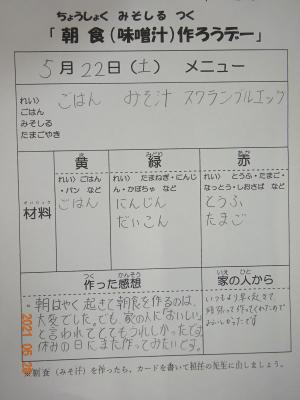 ちょうしょく みそしる つく
「朝食(味噌汁)作ろうデー」
5月22日(土) メニュー
れい) ごはん みそ汁 スクランブルエッグ
ごはん
みそしる
たまごやき
き みどり あか
黄 緑 赤
れい) ごはん・パン など
れい) たまねぎ・にんじん・かぼちゃ など
れい) とうふ・たまご・なっとう・しおさば など
ざいりょう
材料
ごはん
にんじん
だいこん
とうふ
たまご
つく かんそう
作った感想
いえ ひと
家の人から
朝はやく起きて朝食を作るのは、
大変でした。でも、家の人に「おいしい」
と言われてとてもうれしかったです。
休みの日にまた作ってみたいです。
いつもより早く起きて
頑張って作ってくれたので
おいしかったです
※朝食(みそ汁)を作ったら、カードを書いて担任の先生に出しましょう。
2021 05